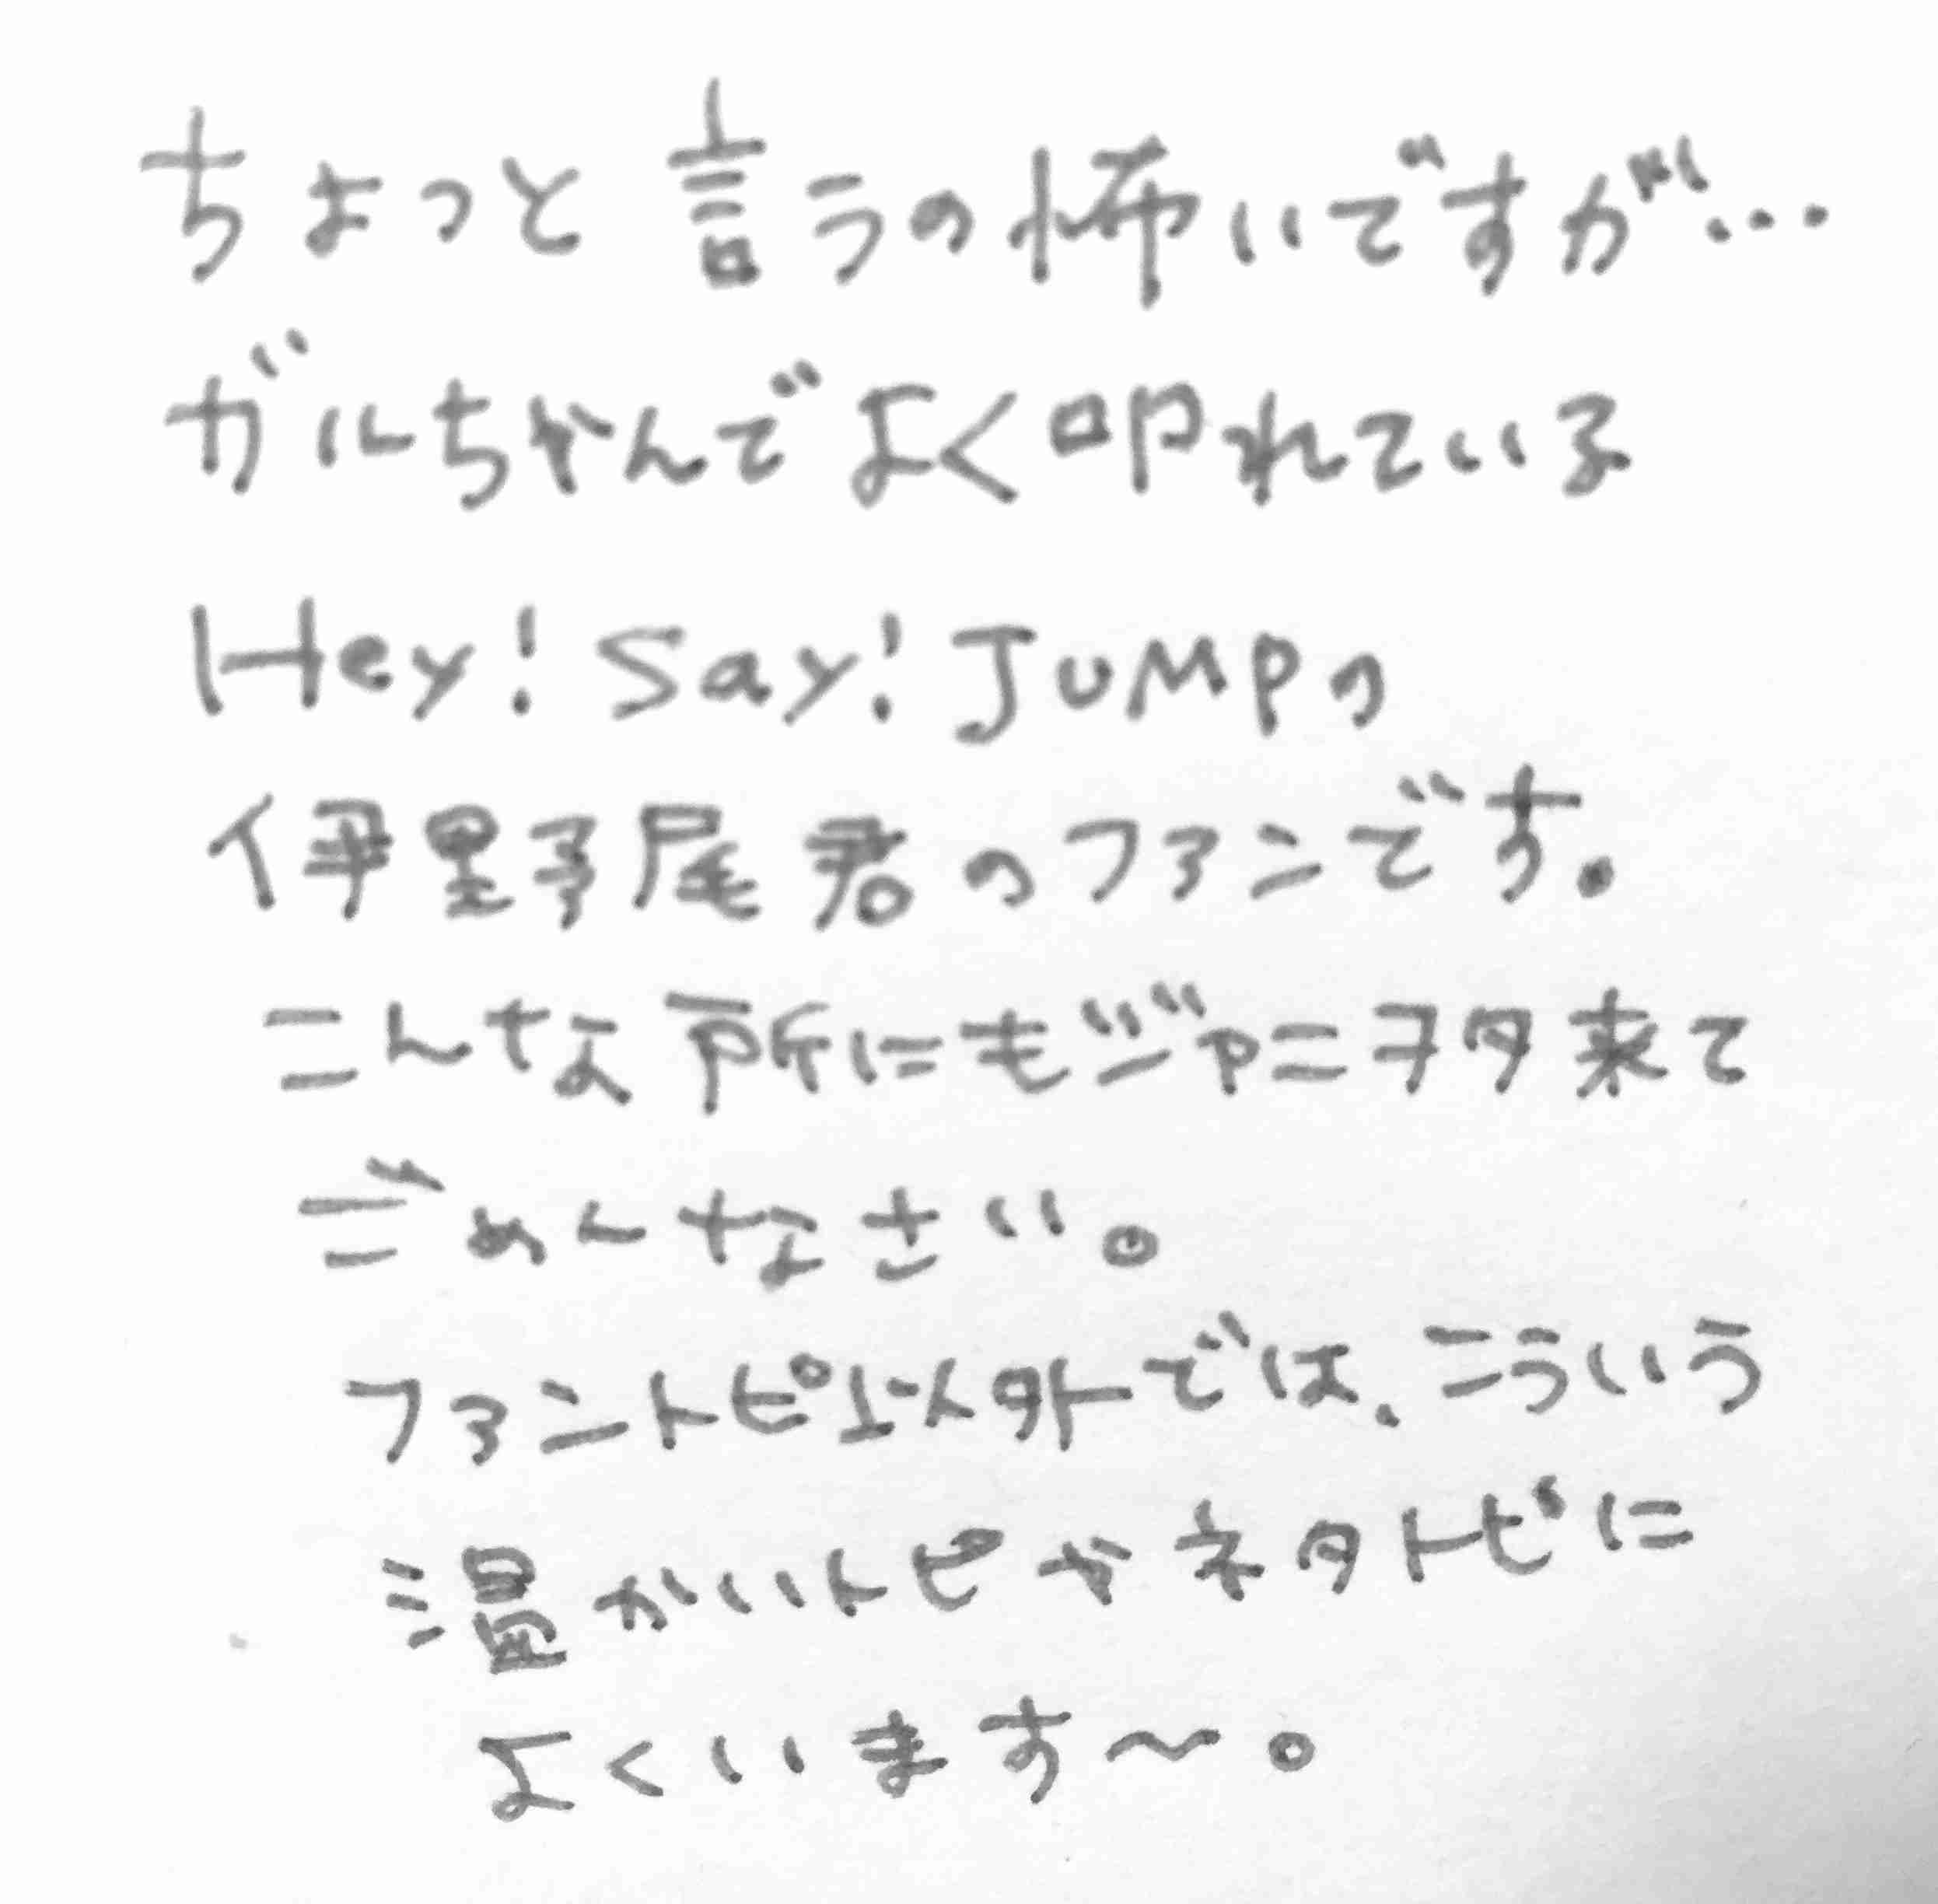 ちょっと言うの怖いですが…
ガルちゃんでよく叩れている
Hey! Say! JUMPの
伊野尾君のファンです。
こんな所にもジャニヲタ来て
ごめんなさい。
ファントピ以外では、こういう
温かいトピやネタトピに
よくいます〜。